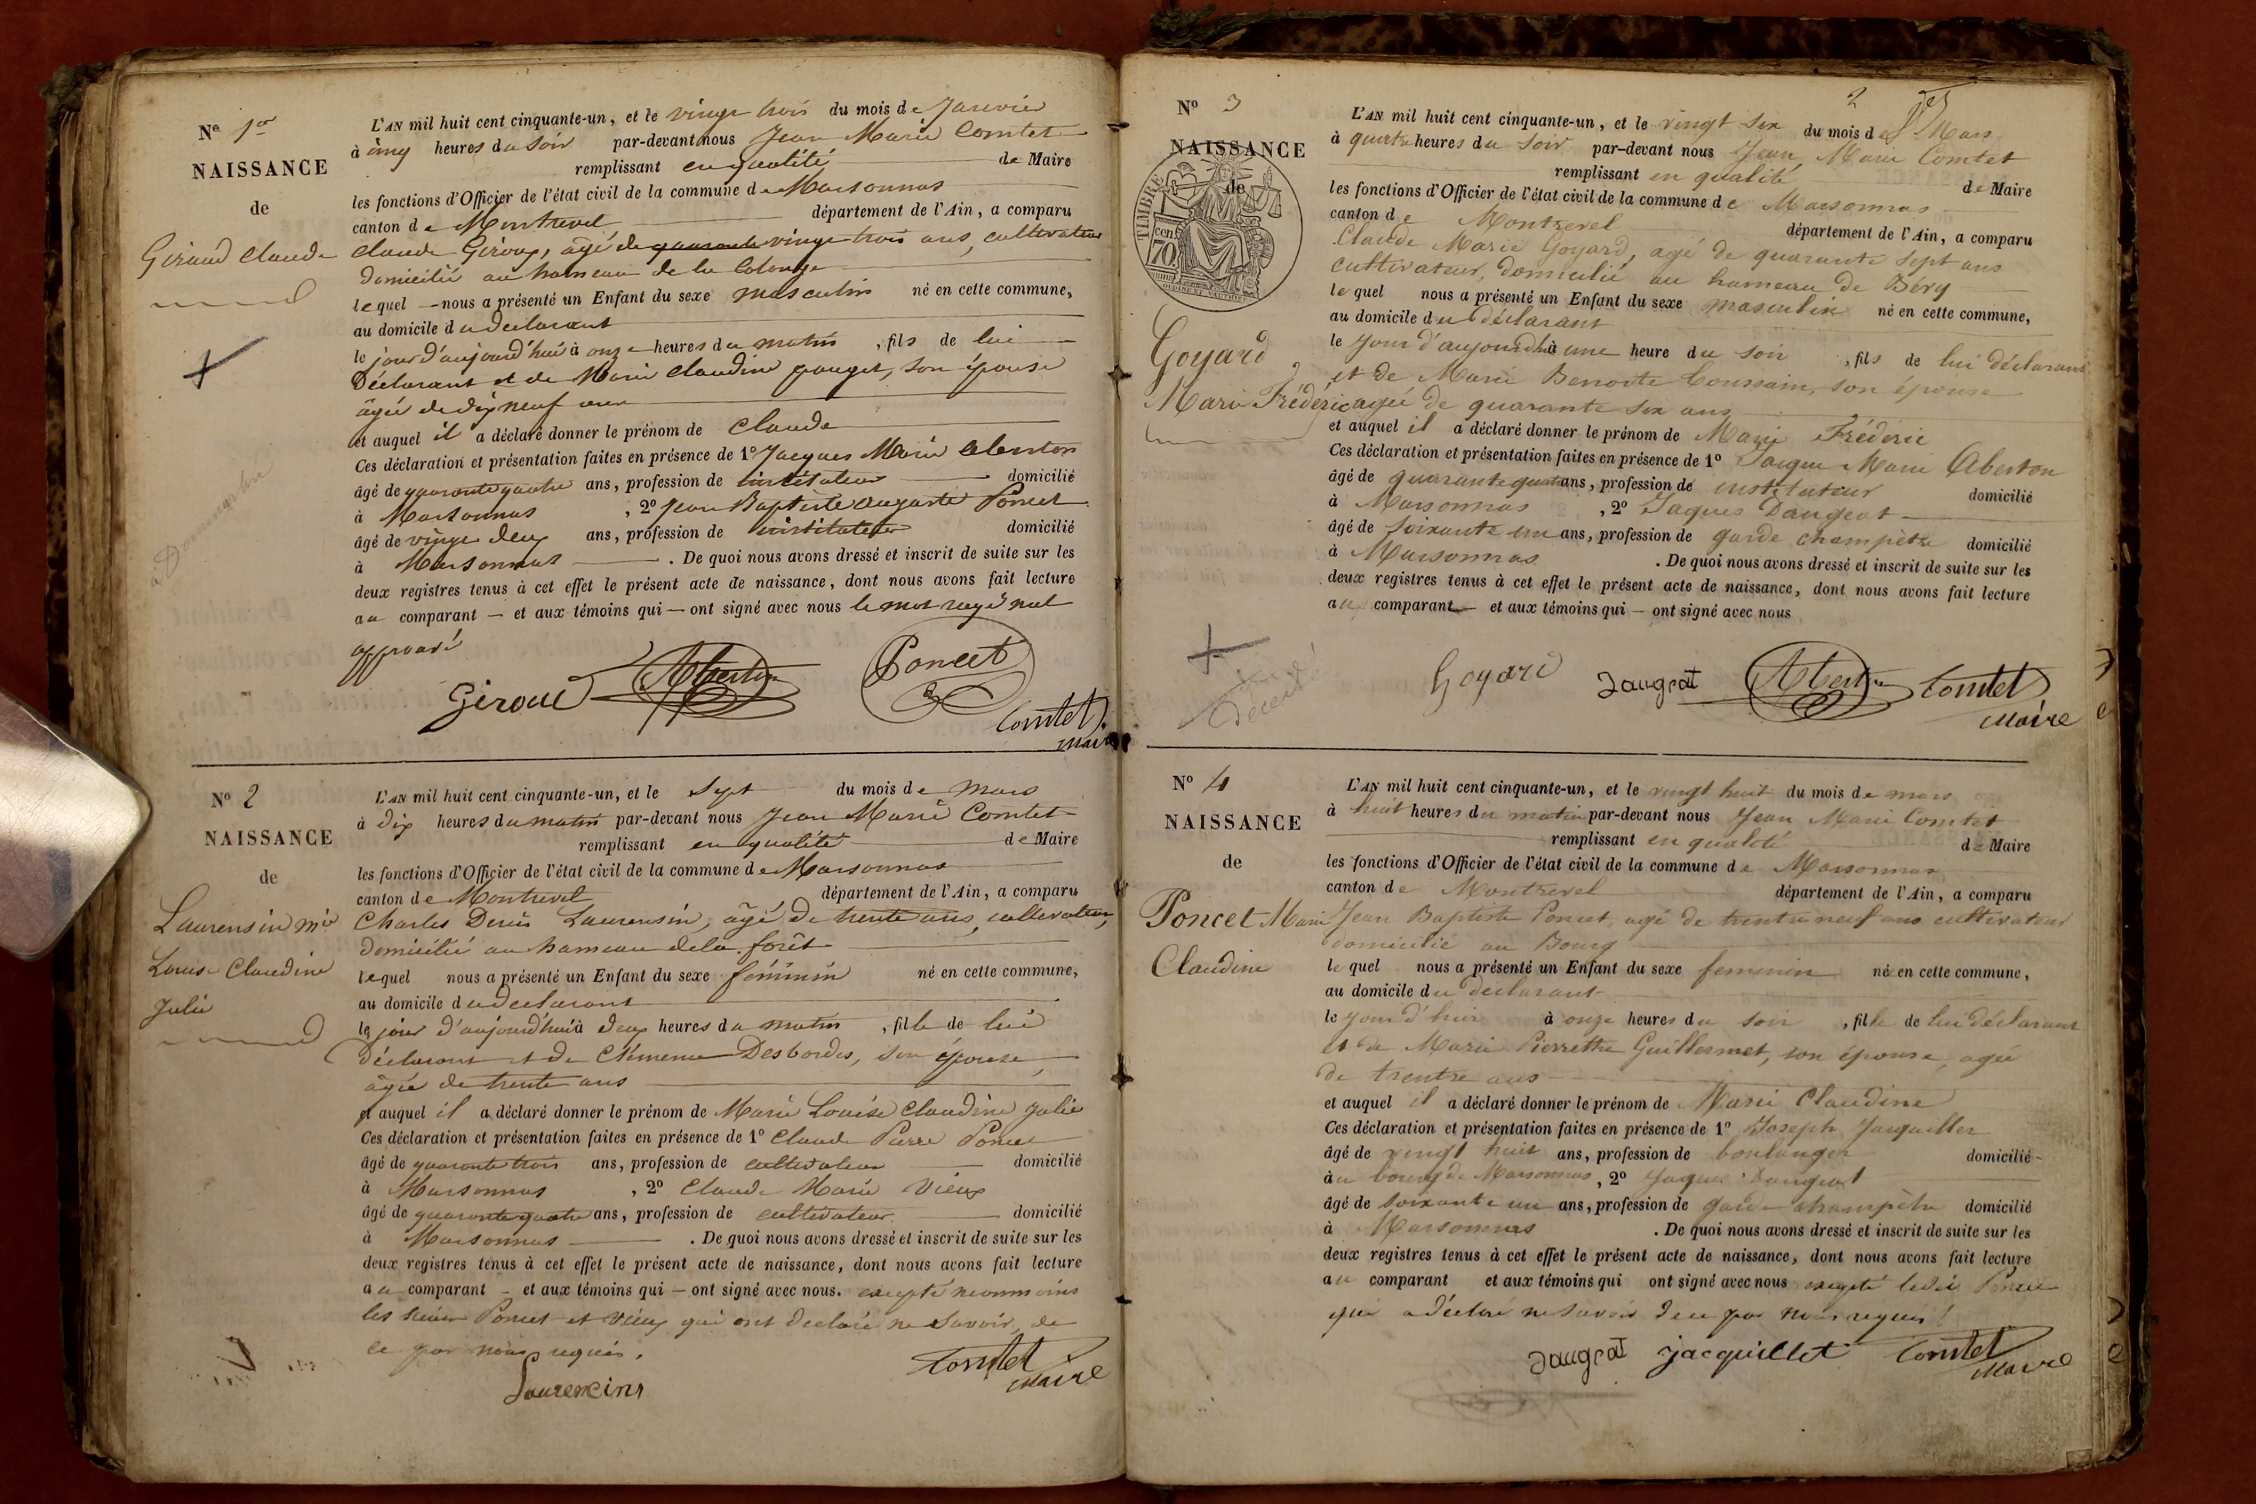 Nº 1er
NAISSANCE
de
Giraud Claude
L'AN mil huit cent cinquante-un, et le vingt trois du mois de Janvier
à cinq heures du soir par-devant nous Jean Marie Comtet
remplissant en qualité de Maire
les fonctions d'Officier de l'état civil de la commune de Marsonnas
canton de Montrevel département de l'Ain, a comparu
Claude Giroux, âgé de quarante vingt trois ans, cultivateur
domicilié au hameau de la
lequel nous a présenté un Enfant du sexe masculin né en cette commune,
au domicile du déclarant
le jour d'aujourd'hui à onze heures du matin, fils de lui
Déclarant et de Marie Claudine pauget, son épouse
âgée de dix neuf ans
et auquel il a déclaré donner le prénom de Claude
Ces déclaration et présentation faites en présence de 1º Jacques Marie Aberton
âgé de quarante quatre ans, profession de instituteur domicilié
à Marsonnas, 2º Jean Baptiste auguste Poncet
âgé de vingt deux ans, profession de instituteur domicilié
à Marsonnas. De quoi nous avons dressé et inscrit de suite sur les
deux registres tenus à cet effet le présent acte de naissance, dont nous avons fait lecture
au comparant et aux témoins qui ont signé avec nous le mot rayé nul
approuvé
Giroux Aberton Poncet
Comtet
Maire
Nº 2
NAISSANCE
de
Laurensin Mie
Louise Claudine
Julie
L'AN mil huit cent cinquante-un, et le Sept du mois de Mars
à dix heures du matin par-devant nous Jean Marie Comtet
remplissant en qualité de Maire
les fonctions d'Officier de l'état civil de la commune de Marsonnas
canton de Montrevel département de l'Ain, a comparu
Charles Denis Laurensin, âgé de trente ans, cultivateur,
domicilié au hameau de la forêt
lequel nous a présenté un Enfant du sexe féminin né en cette commune,
au domicile du déclarant
le jour d'aujourd'hui à deux heures du matin, fille de lui
déclarant et de Clémence Desbordes, son épouse,
âgée de trente ans
et auquel il a déclaré donner le prénom de Marie Louise Claudine Julie
Ces déclaration et présentation faites en présence de 1º Claude Pierre Poncet
âgé de quarante trois ans, profession de cultivateur domicilié
à Marsonnas, 2º Claude Marie Vieux
âgé de quarante quatre ans, profession de cultivateur domicilié
à Marsonnas. De quoi nous avons dressé et inscrit de suite sur les
deux registres tenus à cet effet le présent acte de naissance, dont nous avons fait lecture
au comparant et aux témoins qui ont signé avec nous. excepté néanmoins
les sieurs Poncet et Vieux qui ont déclaré ne savoir, de
ce par nous requis.
Laurencins
Comtet
Maire
2
Nº 3
NAISSANCE
de
TIMBRE
70 cent
Goyard
Marie Frédéric
décédé
L'AN mil huit cent cinquante-un, et le vingt six du mois de Mars
à quatre heures du soir par-devant nous Jean Marie Comtet
remplissant en qualité de Maire
les fonctions d'Officier de l'état civil de la commune de Marsonnas
canton de Montrevel département de l'Ain, a comparu
Claude Marie Goyard, agé de quarante sept ans
cultivateur, domicilié au hameau de Béry
lequel nous a présenté un Enfant du sexe masculin né en cette commune,
au domicile du déclarant
le jour d'aujourd'hui à une heure du soir, fils de lui déclarant
et de Marie Benoite Coussain, son épouse
agée de quarante six ans
et auquel il a déclaré donner le prénom de Marie Fréderic
Ces déclaration et présentation faites en présence de 1º Jacque Marie Aberton
âgé de quarante quatre ans, profession de instituteur domicilié
à Marsonnas, 2º Jaques Daugeat
âgé de soixante un ans, profession de garde champêtre domicilié
à Marsonnas. De quoi nous avons dressé et inscrit de suite sur les
deux registres tenus à cet effet le présent acte de naissance, dont nous avons fait lecture
au comparant et aux témoins qui ont signé avec nous
Goyard Daugeat Aberton Comtet
Maire
Nº 4
NAISSANCE
de
Poncet Marie
Claudine
L'AN mil huit cent cinquante-un, et le vingt huit du mois de mars
à huit heures du matin par-devant nous Jean Marie Comtet
remplissant en qualité de Maire
les fonctions d'Officier de l'état civil de la commune de Marsonnas
canton de Montrevel département de l'Ain, a comparu
Jean Baptiste Poncet, agé de trente neuf ans cultivateur
domicilié au Bourg
lequel nous a présenté un Enfant du sexe feminin né en cette commune,
au domicile du déclarant
le jour d'hier à onze heures du soir, fille de lui déclarant
et de Marie Pierrette Guillermet, son épouse, agée
de trente ans
et auquel il a déclaré donner le prénom de Marie Claudine
Ces déclaration et présentation faites en présence de 1º Joseph Jacquillet
âgé de vingt huit ans, profession de boulanger domicilié
à au bourg de Marsonnas, 2º Jaques Daugeat
âgé de soixante un ans, profession de garde champêtre domicilié
à Marsonnas. De quoi nous avons dressé et inscrit de suite sur les
deux registres tenus à cet effet le présent acte de naissance, dont nous avons fait lecture
au comparant et aux témoins qui ont signé avec nous excepté ledit Poncet
qui a déclaré ne savoir de ce par nous requis!
Daugeat jacquillet Comtet
Maire